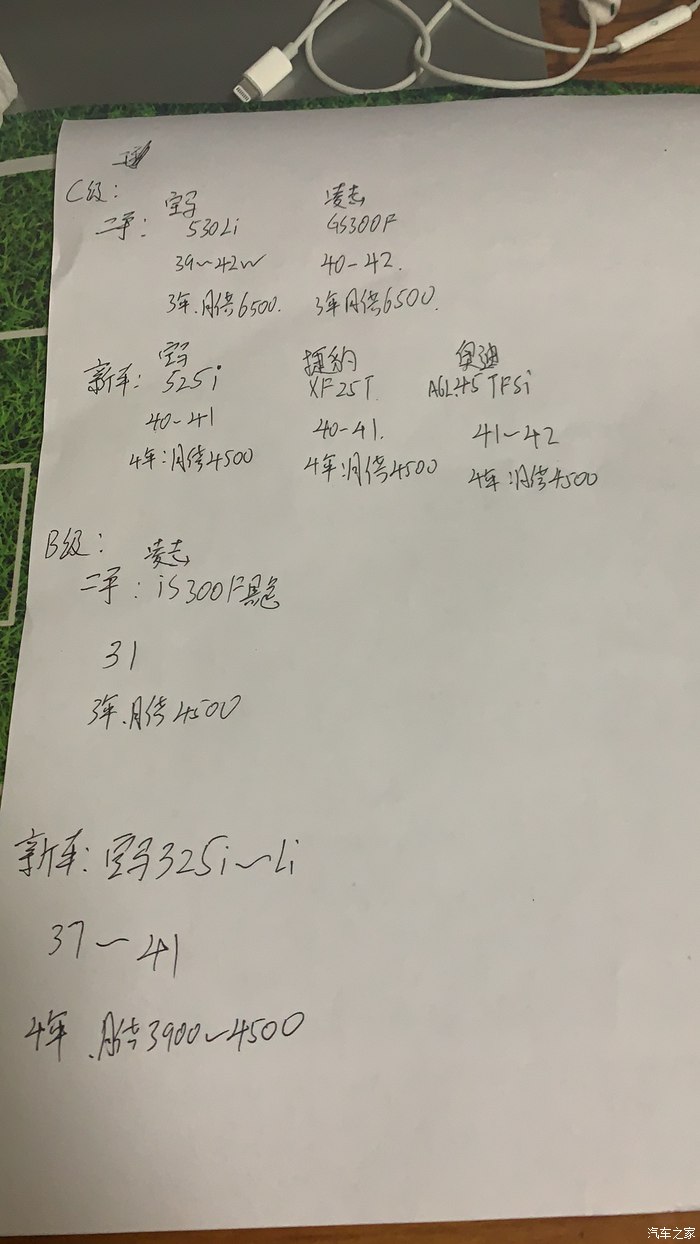 C级:
宝马 凌志
二手: 530Li GS300F
39~42W 40-42.
3年.月供6500. 3年月供6500.
宝马 捷豹 奥迪
新车: 525i XF25T A6L45TFSi
40-41 40-41. 41~42
4年:月供4500 4年:月供4500 4年:月供4500
B级:
凌志
二手: iS300F黑色
31
3年.月供4500
新车: 宝马325i~Li
37~41
4年.月供3900~4500
汽车之家